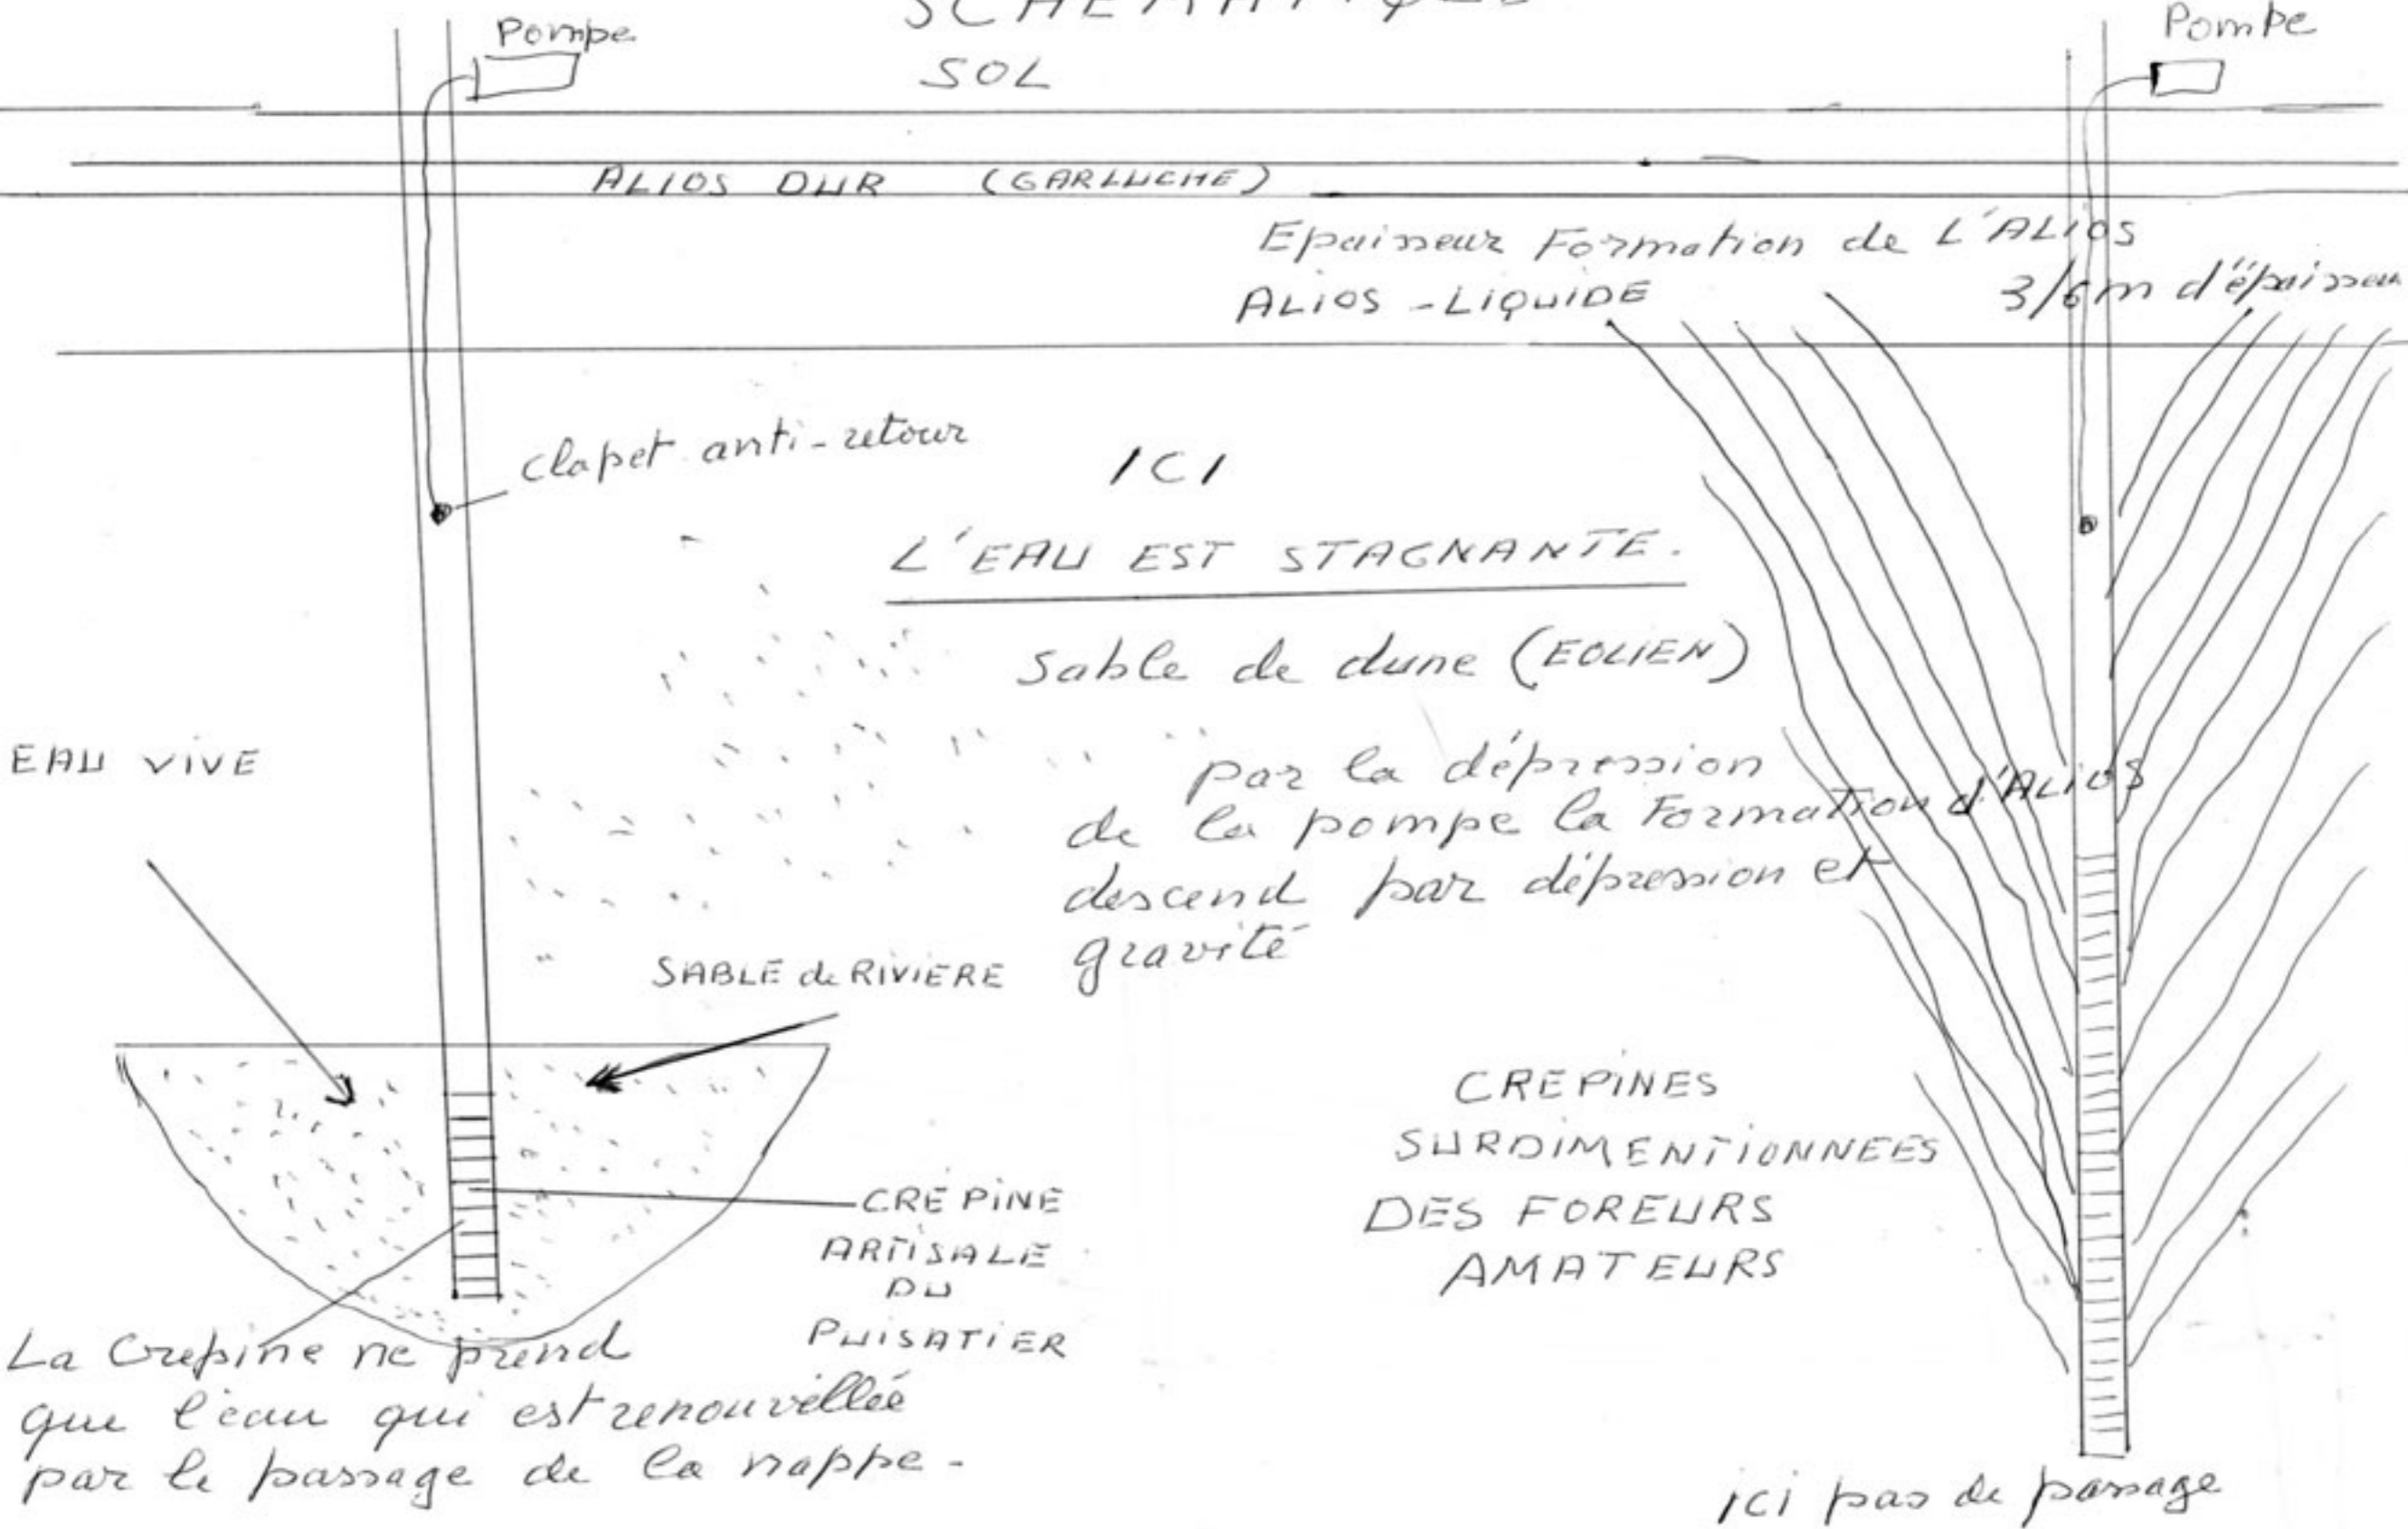 SCHEMATIQUE
Pompe
Pompe
SOL
ALIOS DUR (GARLUCHE)
Epaisseur Formation de L'ALIOS
ALIOS - LIQUIDE
3/6m d'épaisseur
clapet anti-retour
ICI
L'EAU EST STAGNANTE.
Sable de dune (EOLIEN)
EAU VIVE
par la dépression
de la pompe la Formation d'ALIOS
descend par dépression et
gravité
SABLE de RIVIERE
CREPINES
SURDIMENTIONNEES
DES FOREURS
AMATEURS
CREPINE
ARTISALE
DU
PUISATIER
La Crepine ne prend
que l'eau qui est renouvellée
par le passage de la nappe -
ici pas de passage